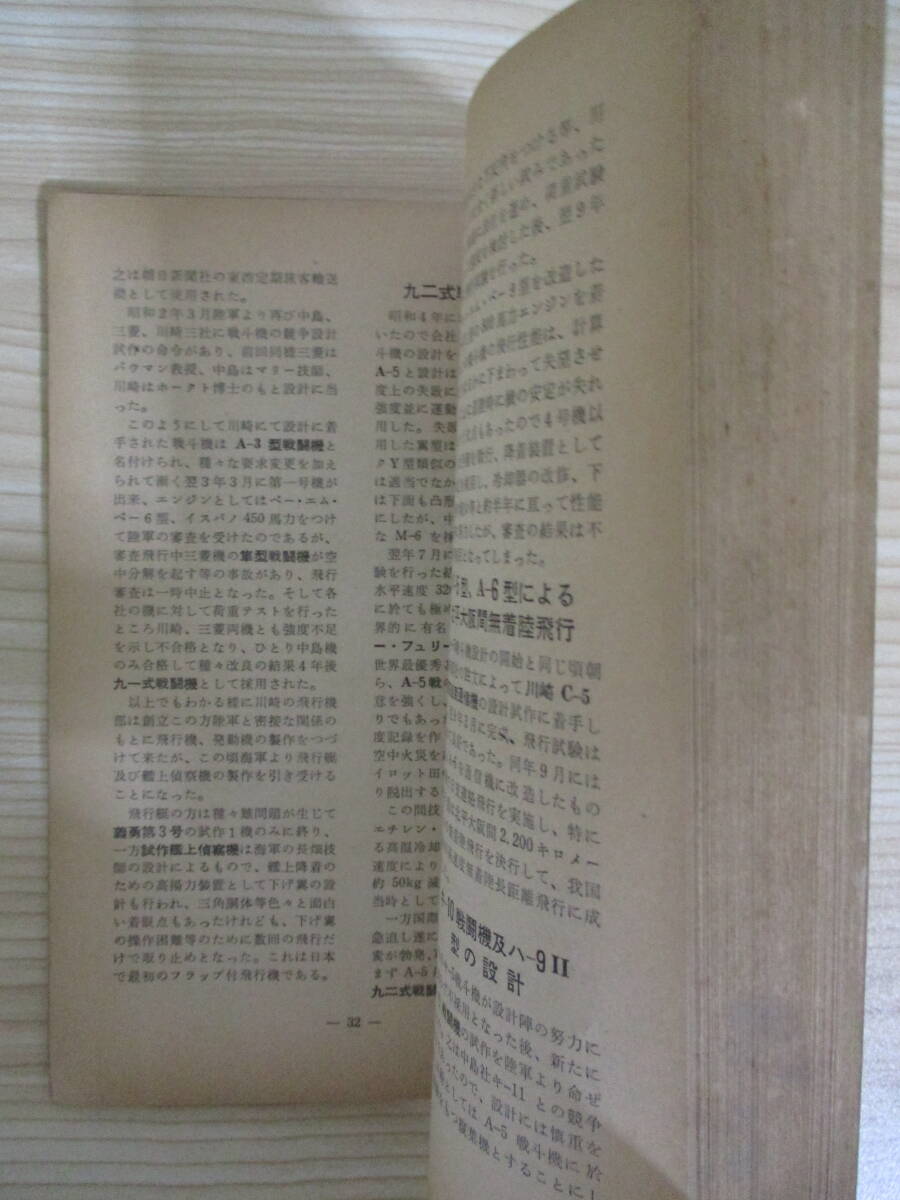 之は朝日新聞社の東西定期旅客輸送
機として使用された。
昭和2年3月陸軍より再び中島、
三菱、川崎三社に戦斗機の競争設計
試作の命令があり、前回同様三菱は
バウマン教授、中島はマリー技師、
川崎はホークト博士のもと設計に当
った。
このようにして川崎にて設計に着
手された戦斗機は A-3 型戦闘機と
名付けられ、種々な要求変更を加え
られて漸く翌3年3月に第一号機が
出来、エンジンとしてはベー・エム・
ベー6型、イスパノ 450 馬力をつけ
て陸軍の審査を受けたのであるが、
審査飛行中三菱機の隼型戦闘機が空
中分解を起す等の事故があり、飛行
審査は一時中止となった。そして各
社の機に対して荷重テストを行った
ところ川崎、三菱両機とも強度不足
を示し不合格となり、ひとり中島機
のみ合格して種々改良の結果4年後
九一式戦闘機として採用された。
以上でもわかる様に川崎の飛行機
部は創立この方陸軍と密接な関係の
もとに飛行機、発動機の製作をつづ
けて来たが、この頃海軍より飛行艇
及び艦上偵察機の製作を引き受ける
ことになった。
飛行艇の方は種々難問題が生じて
義勇第3号の試作1機のみに終り、
一方試作艦上偵察機は海軍の長畑技
師の設計によるもので、艦上降着の
ための高揚力装置として下げ翼の設
計も行われ、三角胴体等色々と面白
い着眼点もあったけれども、下げ翼
の操作困難等のために数回の飛行だ
けで取り止めとなった。これは日本
で最初のフラップ付飛行機である。
九二式
昭和4年に
いたので会社
斗機の設計を
A-5と設計は
度上の失敗に
強度並に運動
用した。失
用した翼型は
クY型類似の
は適当でなか
は下面も凸形
にしたが、中
な M-6 を
翌年7月に
験を行った結
水平速度 32
に於ても極
界的に有名
ー・フュリー
世界最優秀
ら、A-5戦
意を強くし、
りでもあっ
度記録を作
空中火災を
イロット田
り脱出する
この間技
エチレン・
る高温冷却
速度により
約 50kg 減
当時として
一方国際
急迫し遂に
変が勃発、
まず A-5
九二式戦闘
— 32 —
をつける等、
しい試みであった
を進め、荷重試験
検討した後、翌9年
試験を行った。
ム・ベー9型を改造した
800馬力エンジンを装
機の飛行性能は、計算
に下まわって失望させ
時に機の安定が失れ
もあったので4号機以
を行、降着装置として
し、冷却器の改修、下
等と約半年に亘って性能
したが、審査の結果は不
となってしまった。
5型、A-6型による
北平大阪間無着陸飛行
機設計の開始と同じ頃朝
の注文によって川崎 C-5
通信機の設計試作に着手し
年8月に完成、飛行試験は
であった。同年9月には
通信機に改造したもの
連絡飛行を実施し、特に
に北平大阪間2,200キロメー
飛行を決行して、我国
無着陸長距離飛行に成
-10戦闘機及ハ-9II
型の設計
戦斗機が設計陣の努力に
採用となった後、新たに
戦闘機の試作を陸軍より命ぜ
は中島社キ-11 との競争
あったので、設計には慎重を
としては A-5 戦斗機に於
もつ複葉機とすることにし